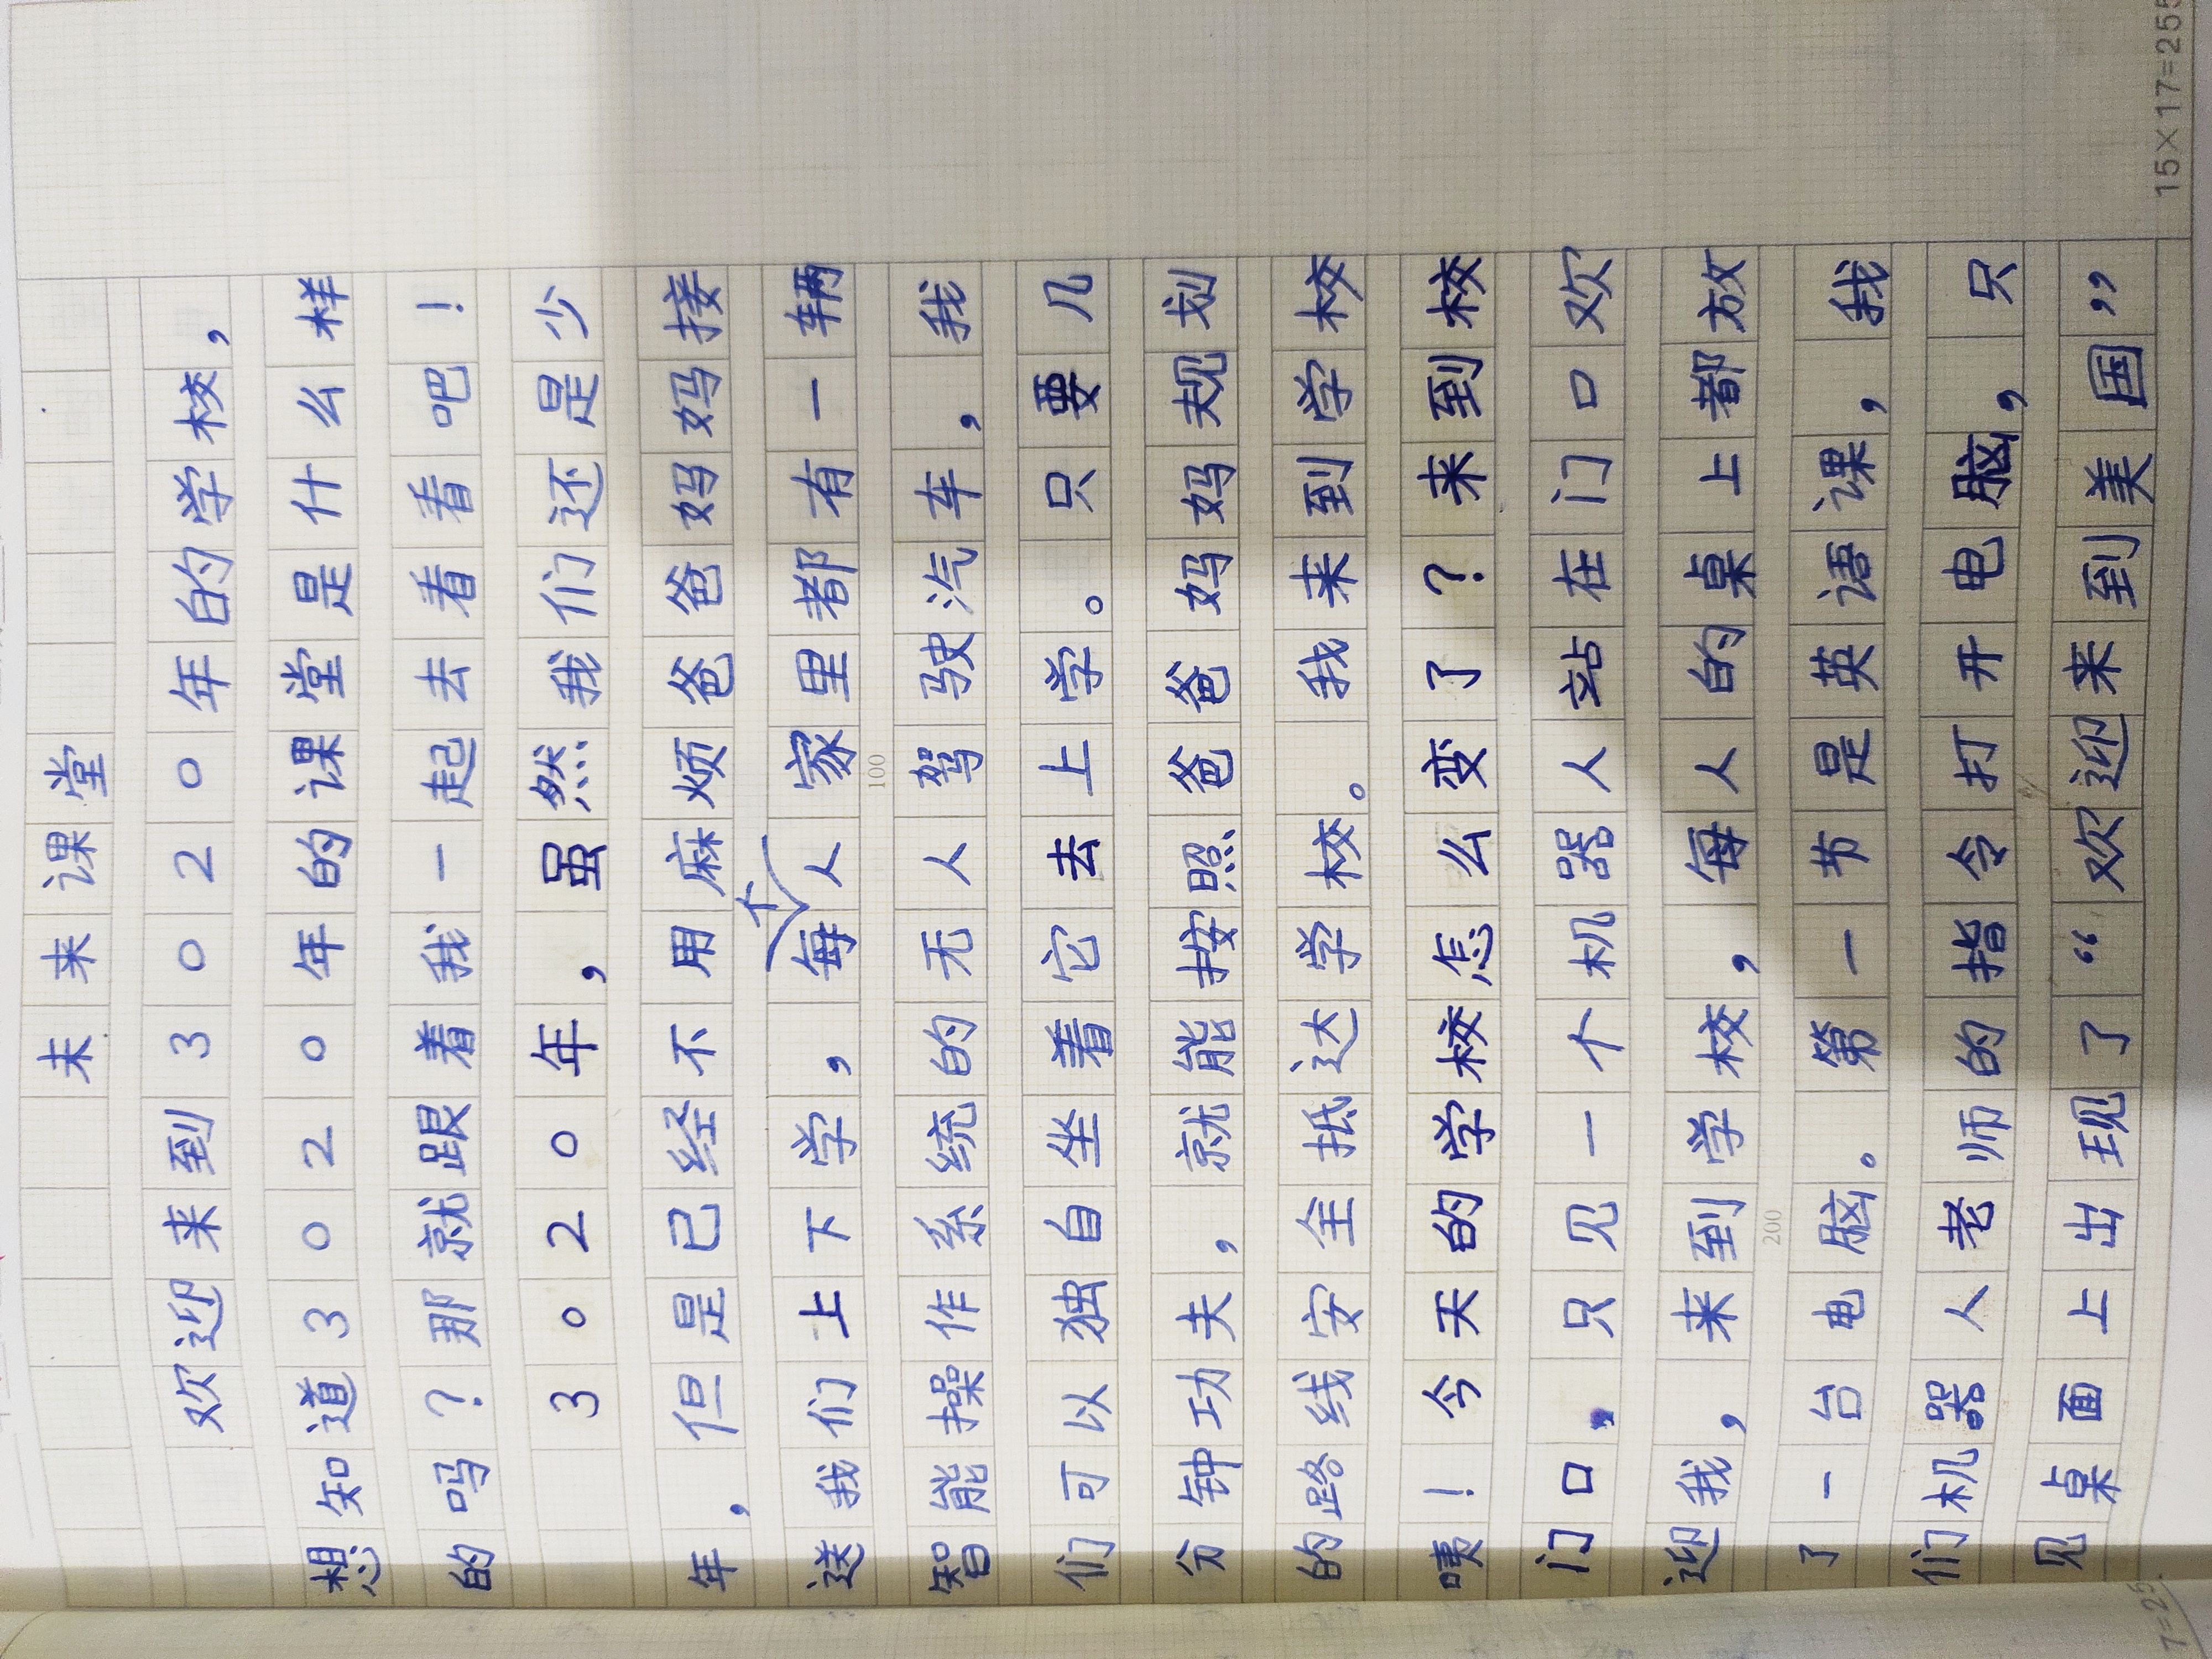 未来课堂
欢迎来到3020年的学校，
想知道3020年的课堂是什么样
的吗？那就跟着我一起去看看吧！
3020年，虽然我们还是少
年，但是已经不用麻烦爸爸妈妈接
送我们上下学，每个人家里都有一辆
智能操作系统的无人驾驶汽车，我
们可以独自坐着它去上学。只要几
分钟功夫，就能按照爸爸妈妈规划
的路线安全抵达学校。我来到学校
咦！今天的学校怎么变了？来到校
门口，只见一个机器人站在门口欢
迎我，来到学校，每人的桌上都放
了一台电脑。第一节是英语课，我
们机器人老师的指令打开电脑，只
见桌面上出现了“欢迎来到美国”
100
200
15×17=255